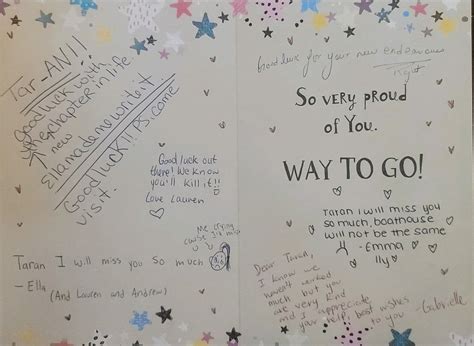 Tar-AN!!
Good luck with
your
new
chapter in life.
Ella made me write it.
Good luck!! P.S. come
visit.
Good luck out
there! We know
you'll kill it!!
Love Lauren
Me crying
cause
Taran I will miss you so much
- Ella
(And Lauren and Andrew)
Good luck for your new endeavours
So very proud
of You.
WAY TO GO!
Taran I will miss you
so much, boathouse
will not be the same
- Emma
Ily
Dear Taran,
I know we
haven't worked
much but you
are very kind
and I appreciate
your help, best wishes
to you -Gabrielle